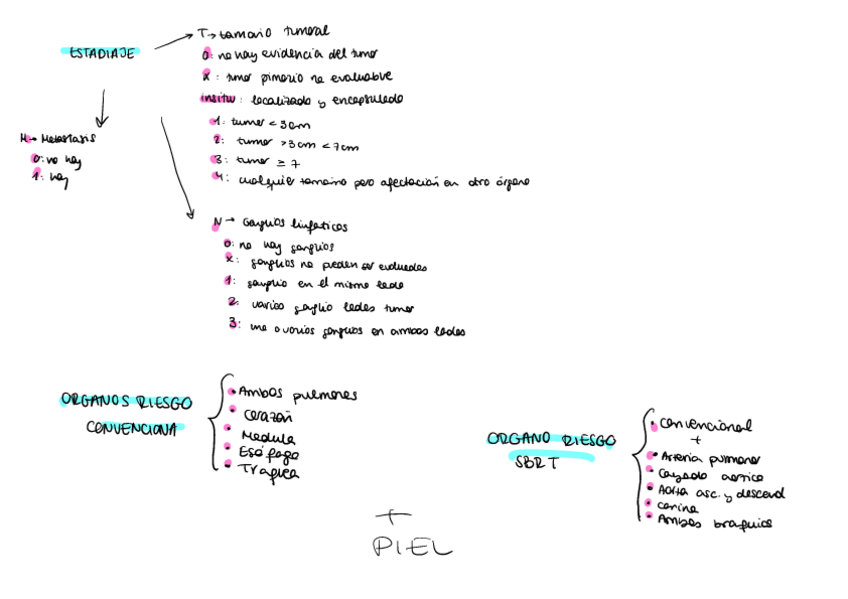 ESTADIAJE
T→ tamaño tumoral
0: no hay evidencia del tumor
X: tumor primario no evaluable
insitu: localizado y encapsulado
1: tumor < 3cm
2: tumor >3cm <7cm
3: tumor ≥ 7
4: cualquier tamaño pero afectación en otro órgano
M→ Metastasis
0: no hay
1: hay
N→ Ganglios linfaticos
0: no hay ganglios
X: ganglios no pueden ser evaluados
1: ganglio en el mismo lado
2: varios ganglio lados tumor
3: uno o varios ganglios en ambos lados
ORGANOS RIESGO
CONVENCIONA
• Ambos pulmones
• Corazón
• Medula
• Esófago
• Traquea
ORGANO RIESGO
SBRT
• Convencional
+
• Arteria pulmonar
• Cayado aortico
• Aorta asc. y descend
• Carina
• Ambos braquios
+
PIEL